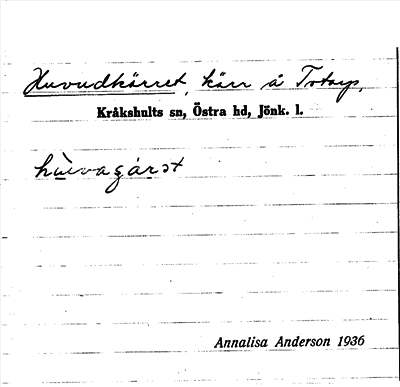 Huvudkärret, kärr å Totarp,
Kråkshults sn, Östra hd, Jönk. l.
Annalisa Anderson 1936